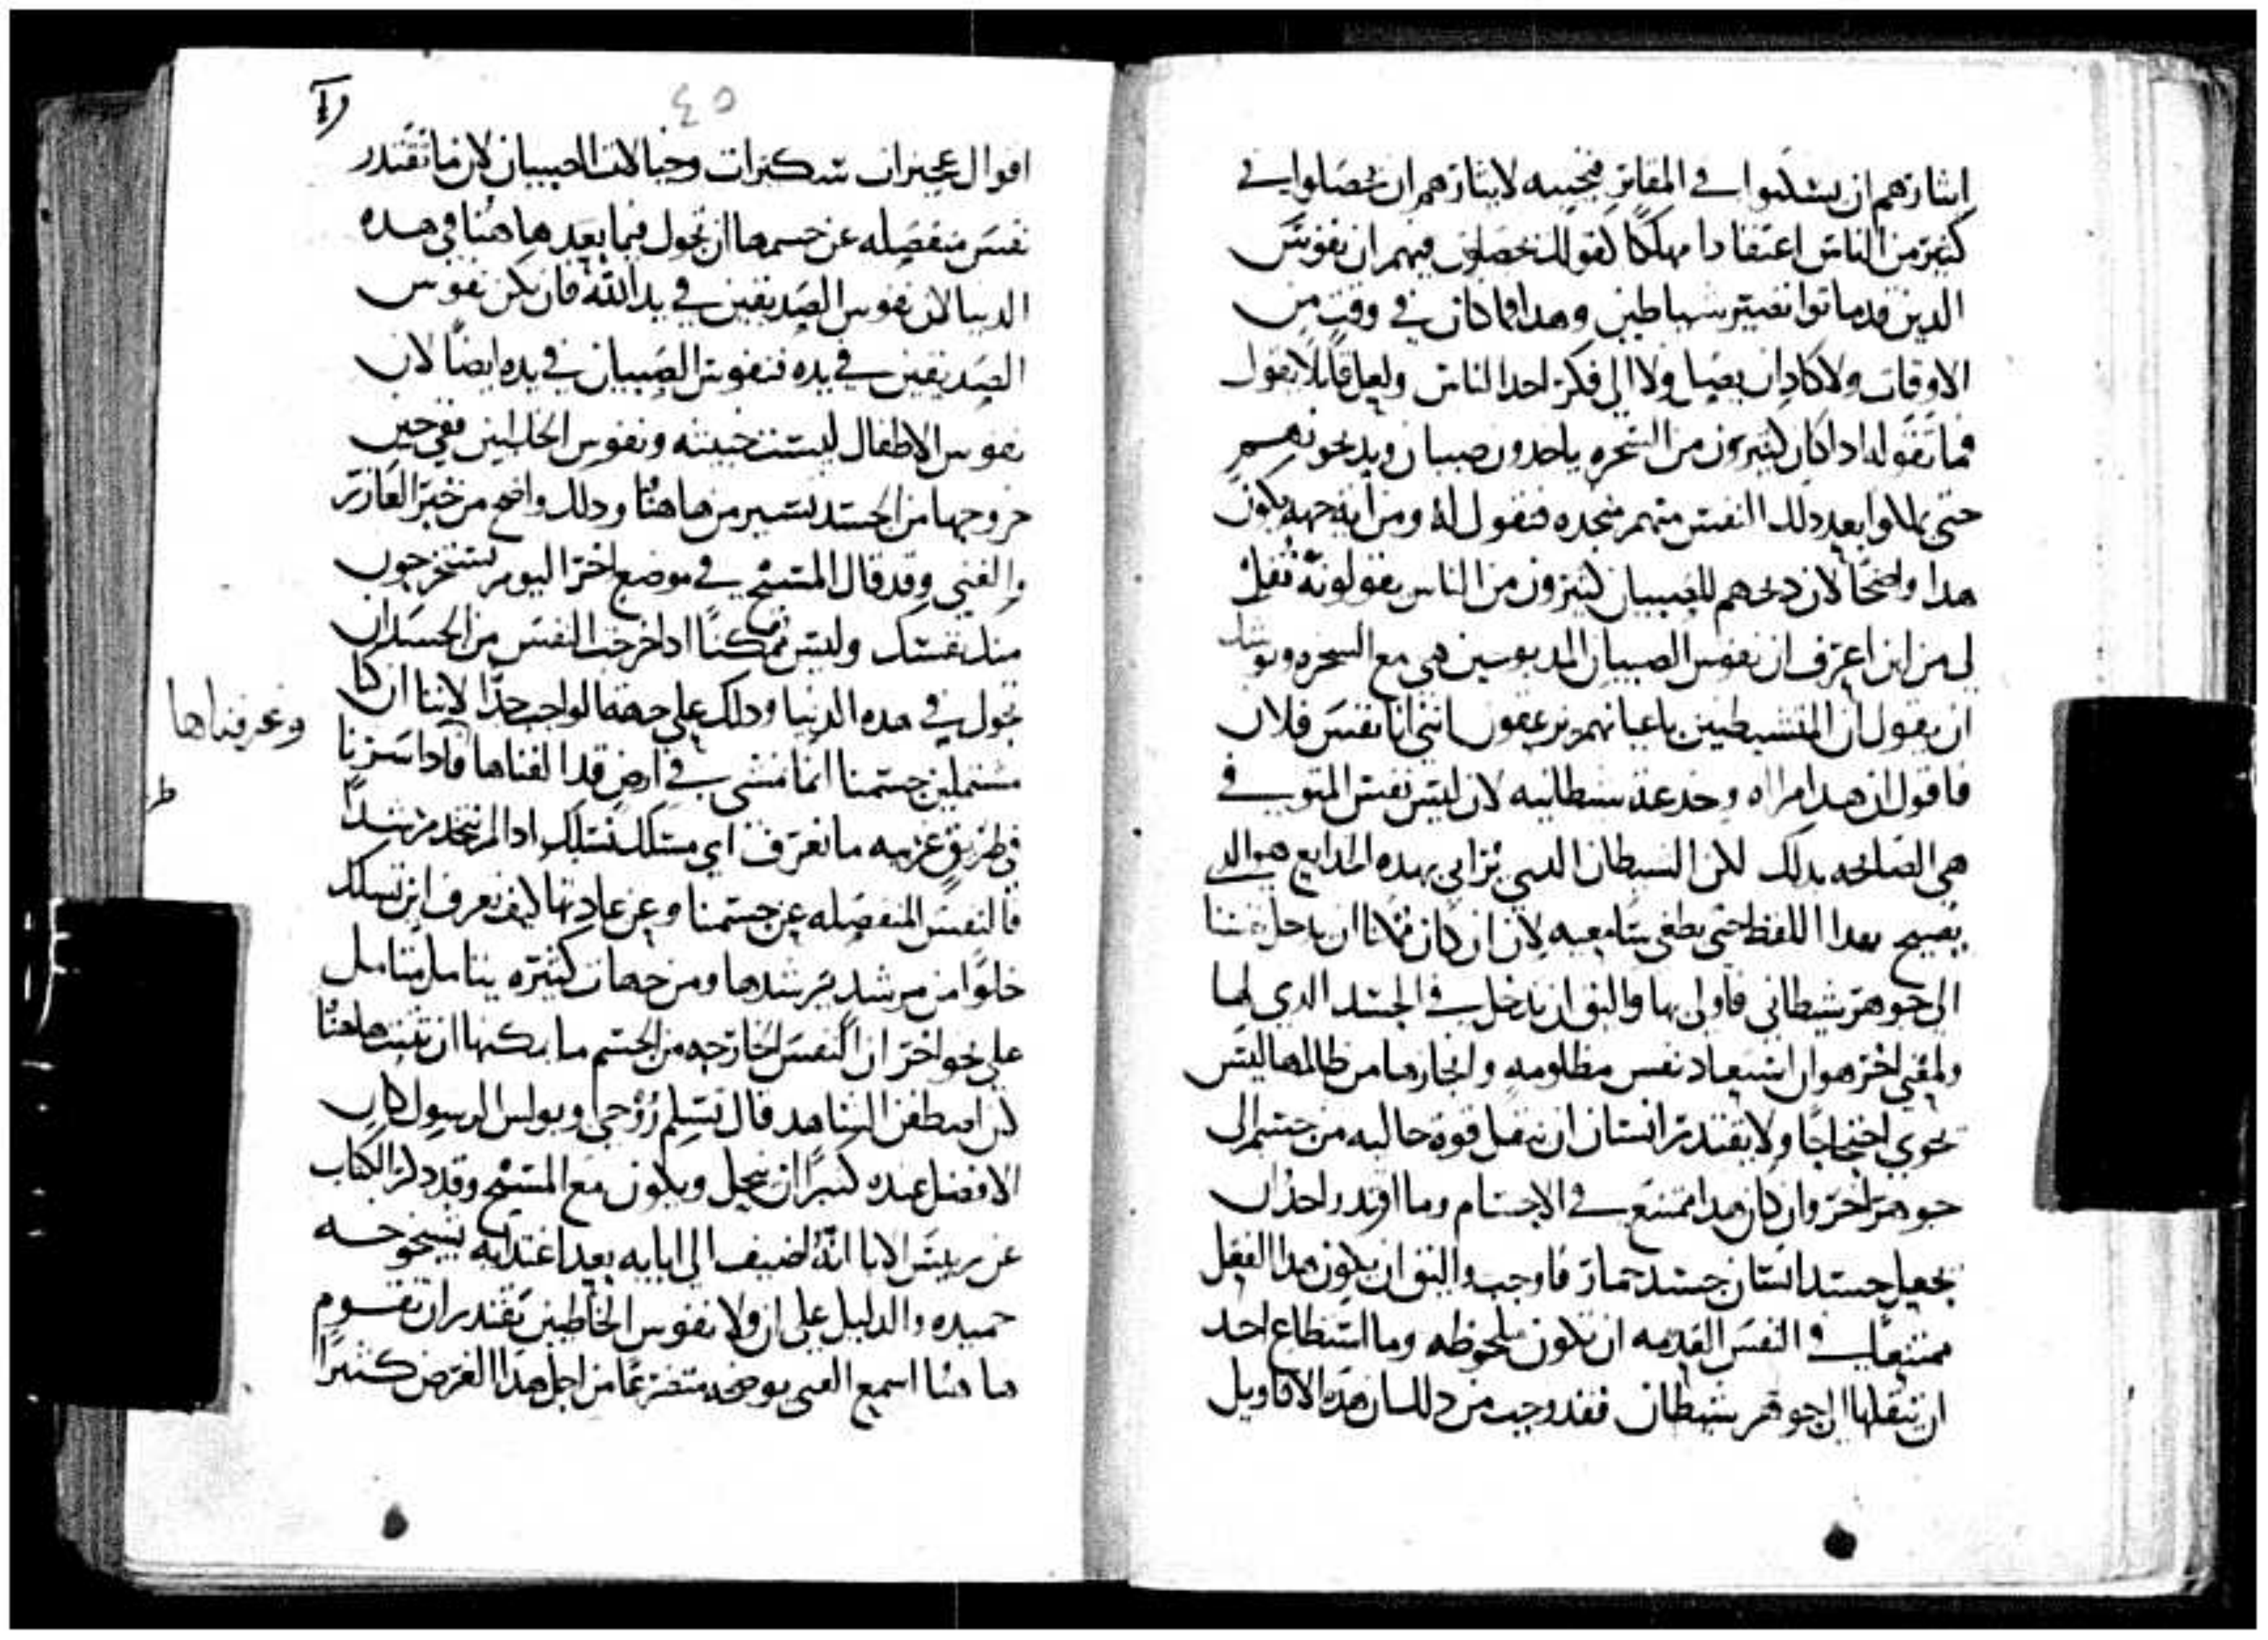 ايثارهم ان يسكنوا في المقابر فنجيبه لايثارهم ان يحصلوا في
كثير من الناس اعتقادا مهلكا كقولك نحصلون فيهم ان نفوس
الدين قد ماتوا تصير شياطين وهدا فما كان في وقت من
الاوقات ولا كاد ان يصل ولا الى فكر احد الناس ولعل قايلا يقول
فما تقوله ادا كان كثيرون من السحره ياخدون صبيان ويدبحونهم
حتى يملكوا بعد دلك النفس منهم منجده فنقول له ومن ايه جهه يكون
هدا واضحا لان دبحهم للصبيان كثيرون من الناس يقولونه فقل
لي من اين اعرف ان نفوس الصبيان المدبوحين هي مع السحره ويوشك
ان يقول ان المتشيطنين باعيانهم يزعقون انني انا نفس فلان
فاقول ان هدا مراياه وخدعه شيطانيه لان ليس نفس المتوفي
هي الصايحه بدلك لكن الشيطان الدي يرايي بهده الخدايع هو الدي
يصيح بهدا اللفظ حتى يطغي سامعيه لان ان كان ممكنا ان يدخل نفسا
الى جوهر شيطاني فاولى بها واليق ان تدخل في الجسد الدي لها
ولمعني اخر هو ان استبعاد نفس مظلومه وانجادها من ظالمها ليس
يحوي احتجاجا ولا يقتدر انسان ان ينقل قوه خاليه من جسم الى
جوهر اخر وان كان هدا ممتنع في الاجسام وما اقتدر احد ان
يجعل جسد انسان جسد حمار فاوجب واليق ان يكون هدا الفعل
ممتنعا في النفس القديمه ان تكون ملحوظه وما استطاع احد
ان ينقلها الى جوهر شيطان فقد وجب من دلك ان هده الاقاويل
٤٥
اقوال عجيزات سكرات وخيالات الصبيان لان ما تقتدر
نفس منفصله عن جسمها ان تجول فيما بعد ها هنا في هده
الدنيا لان نفوس الصديقين في يد الله فان تكن نفوس
الصديقين في يده فنفوس الصبيان في يده ايضا لان
نفوس الاطفال ليست خبيثه ونفوس الخاطيين ففي حين
خروجها من الجسد تسير من ها هنا ودلك واضح من خبر العازر
والغني وقد قال المسيح في موضع اخر اليوم يستخرجون
منك نفسك وليس ممكنا ادا خرجت النفس من الجسد ان
تجول في هده الدنيا ودلك على جهه الواجب جدا لاننا ان كنا
مشتملين جسمنا انما نمشي في ارض قد الفناها فادا سرنا
وعرفناها
في طريق غريبه ما نعرف اي مسلك نسلك ادا لم نتخد مرشدا
فالنفس المنفصله عن جسمنا وعن عادتها كيف تعرف اين تسلك
خلوا من مرشد يرشدها ومن جهات كثيره يتامل متامل
على نحو اخر ان النفس الخارجه من الجسم ما يمكنها ان تثبت ها هنا
لان اصطفن الشاهد قال تسلم روحي وبولس الرسول كان
الافضل عنده كثيرا ان ينحل ويكون مع المسيح وقد دكر الكتاب
عن رييس الابا انه اضيف الى ابايه بعد اغتدايه بشيخوخه
حميده والدليل على ان ولا نفوس الخاطيين تقتدر ان تقوم
ها هنا اسمع الغني يوضحه متضرعا من اجل هدا الغرض كثيرا